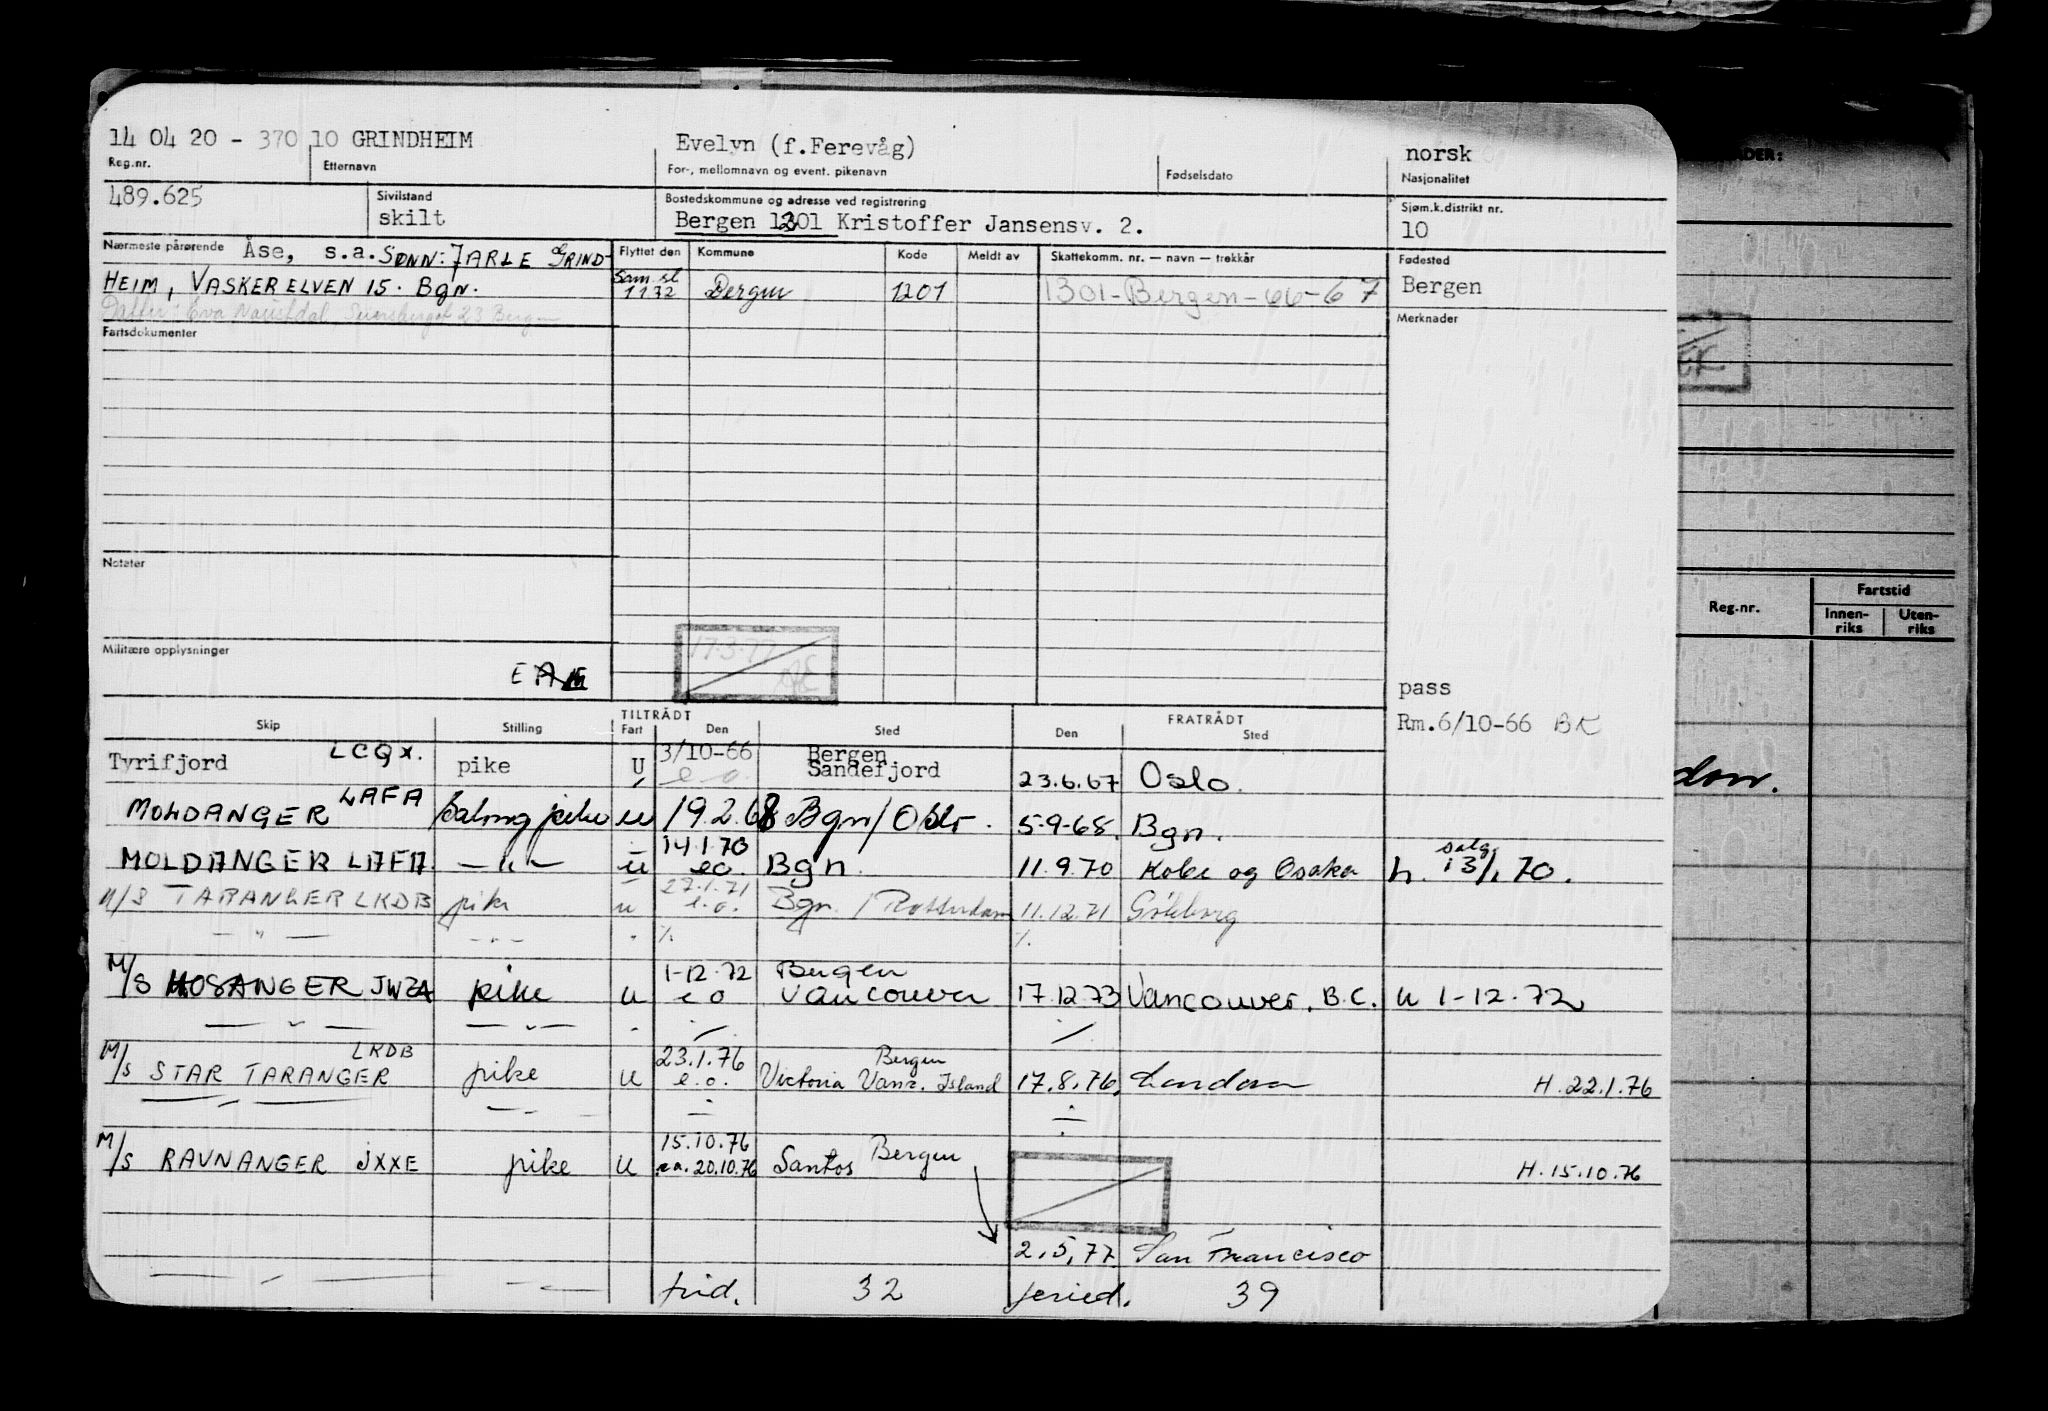 14 04 20 - 370 10 GRINDHEIM Evelyn (f.Ferevåg) norsk
Reg.nr. Etternavn For-, mellomnavn og event. pikenavn Fødselsdato Nasjonalitet
489.625 Sivilstand skilt Bostedskommune og adresse ved registrering Sjøm.k.distrikt nr.
Bergen 1301 Kristoffer Jansensv. 2. 10
Nærmeste pårørende Åse, s.a. SØNN: JARLE GRIND- Flyttet den Kommune Kode Meldt av Skattekomm. nr. — navn — trekkår Fødested
HEIM, VASKERELVEN 15. Bgn. 1172 Bergen 1201 1301-Bergen-66-67 Bergen
Datter: Eva 23 Bergen Merknader
Fartsdokumenter
Notater
Militære opplysninger
17.3.77
pass
Rm.6/10-66 BK
TILTRÅDT FRATRÅDT
Skip Stilling Fart Den Sted Den Sted
Tyrifjord LCQX. pike U 3/10-66 e.o. Bergen Sandefjord 23.6.67 Oslo.
MOLDANGER LAFA Salong pike u 19.2.68 Bgn/Oslo. 5-9-68. Bgn.
MOLDANGER LAFA — " — u 14.1.70 eo. Bgn. 11.9.70 Kobe og Osaka h. 13/1 70.
M/S TARANGER LKDB pike u 27.1.71 e.o. Bgn. / Rotterdam 11.12.71 Göteborg
— " — — " — " ./. ./.
M/S HOSANGER JWZA pike u 1-12-72 e o Bergen Vancouver 17.12.73 Vancouver. B.C. u 1-12-72
— " — — " — " ./. ./.
M/S STAR TARANGER LKDB pike u 23.1.76 e.o. Bergen Victoria Vanc. Island 17.8.76. London H. 22.1.76
— " — — " — ÷ ÷
M/S RAVNANGER JXXE pike u 15.10.76 ea. 20.10.76 Bergen Santos H. 15.10.76
2.5.77 San Francisco
— " — — " — trid. 32 feried. 39
Reg.nr. Fartstid
Innen-riks Uten-riks
don.